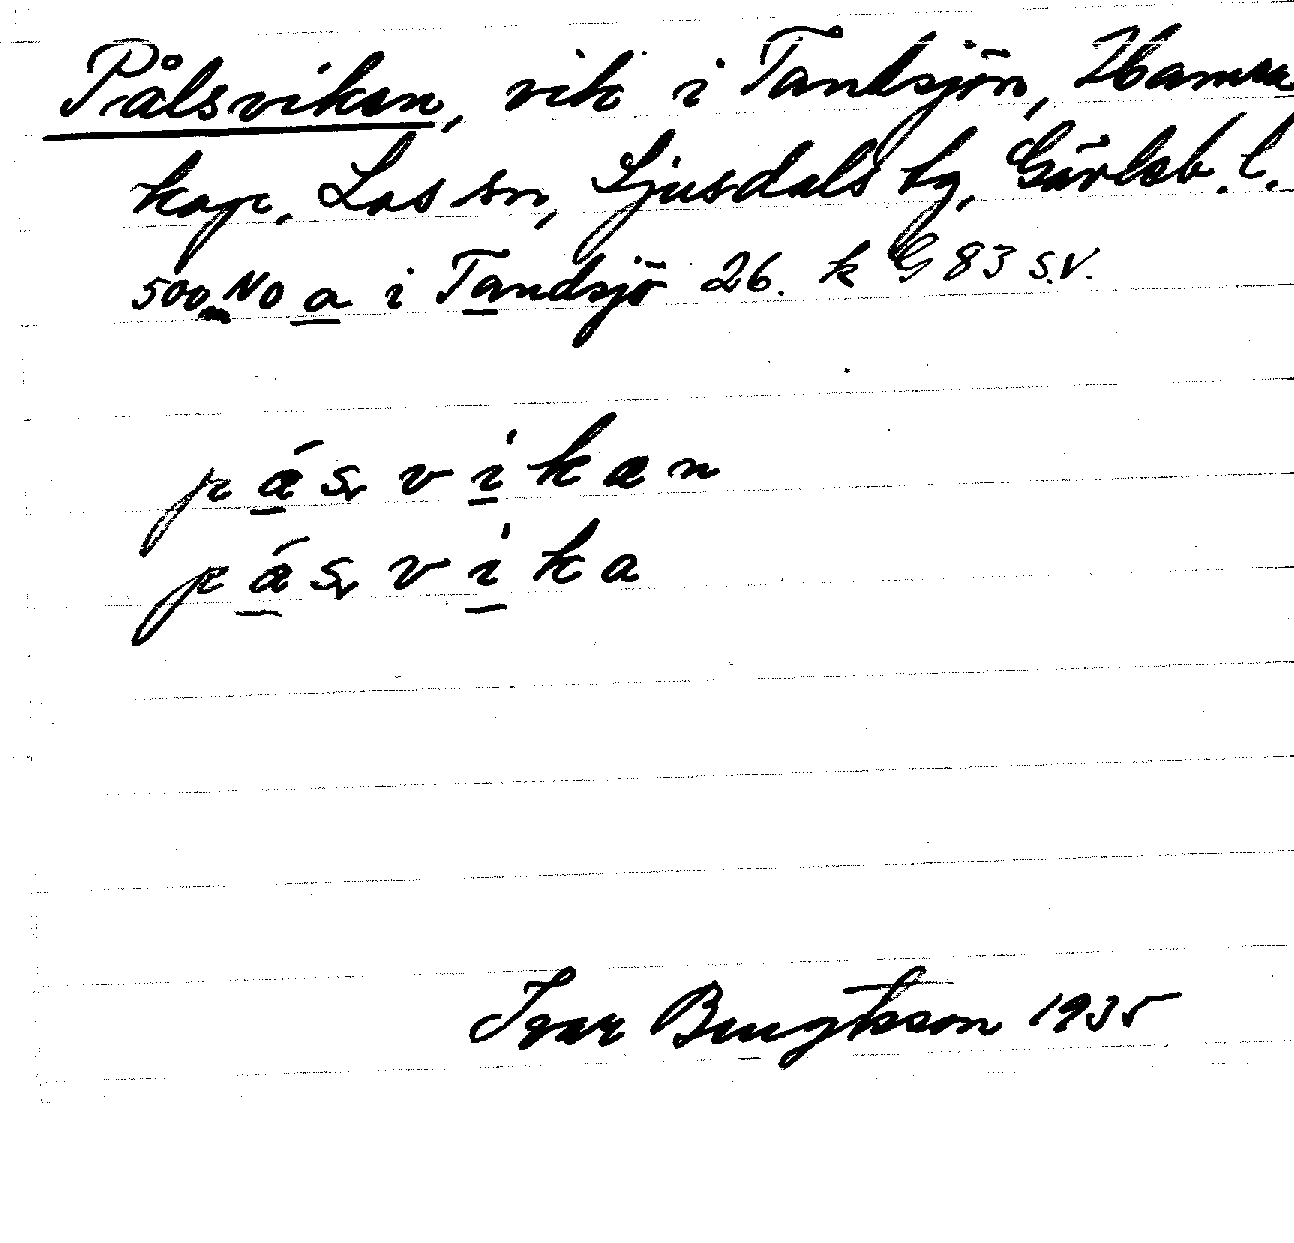 Pålsviken, vik i Tandsjön, Hamra
kap. Los sn, Ljusdals tg, Gävleb. l.
500 m NO a i Tandsjö 26. k G 83 S.V.
pásvikan
pásvika
Ivar Bengtsson 1935